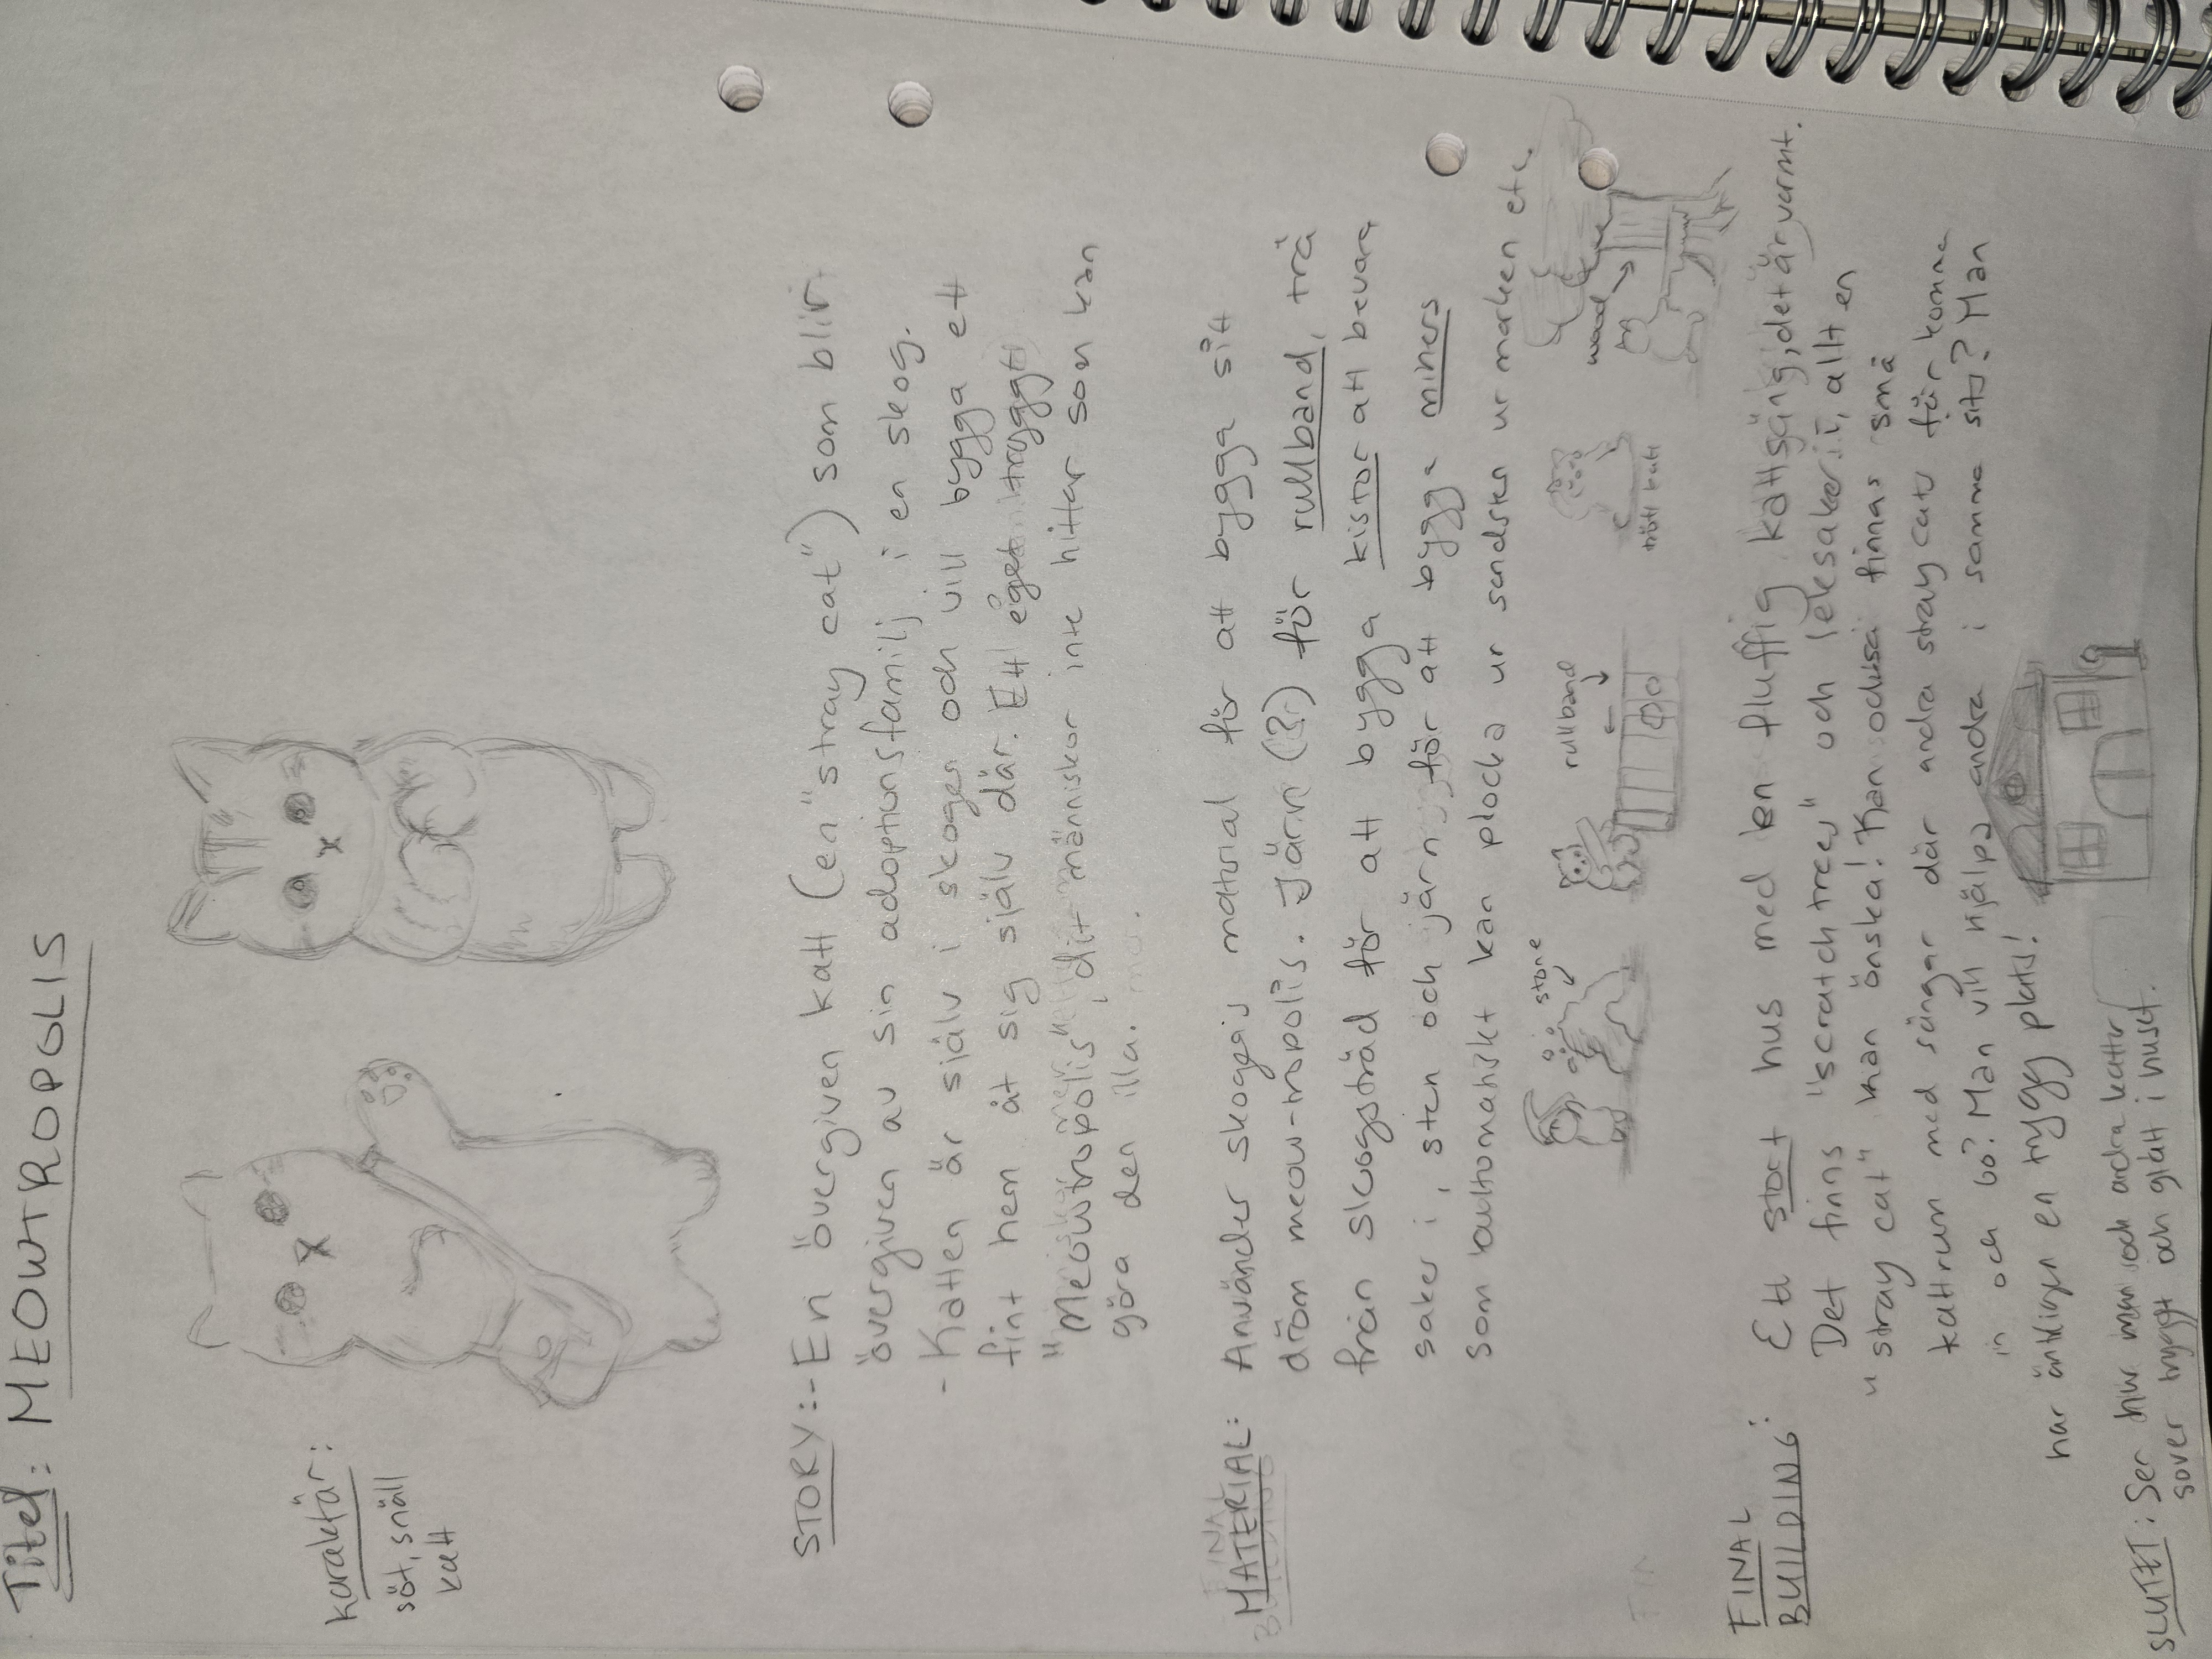 Titel: MEOWTROPOLIS
karaktär:
söt, snäll
katt
STORY: - En övergiven katt (en "stray cat") som blir
övergiven av sin adoptionsfamilj i en skog.
- Katten är själv i skogen och vill bygga ett
fint hem åt sig själv där. Ett eget tryggt
"Meowtropolis", dit människor inte hittar som kan
göra den illa.
MATERIAL: Använder skogens material för att bygga sitt
dröm meow-tropolis. Järn (?) för rullband, trä
från skogsträd för att bygga kistor att bevara
saker i, sten och järn för att bygga miners
som automatiskt kan plocka ur sandsten ur marken etc.
stone
rullband
trött katt
wood
FINAL
BUILDING: Ett stort hus med en fluffig kattsäng, det är varmt.
Det finns "scratch trees" och leksaker i, allt en
"stray cat" kan önska! Kan också finnas små
kattrum med sängar där andra stray cats får komma
in och bo? Man vill hjälpa andra i samma sits? Man
har äntligen en trygg plats!
SLUTET: Ser hur man och andra katter
sover tryggt och glatt i huset.